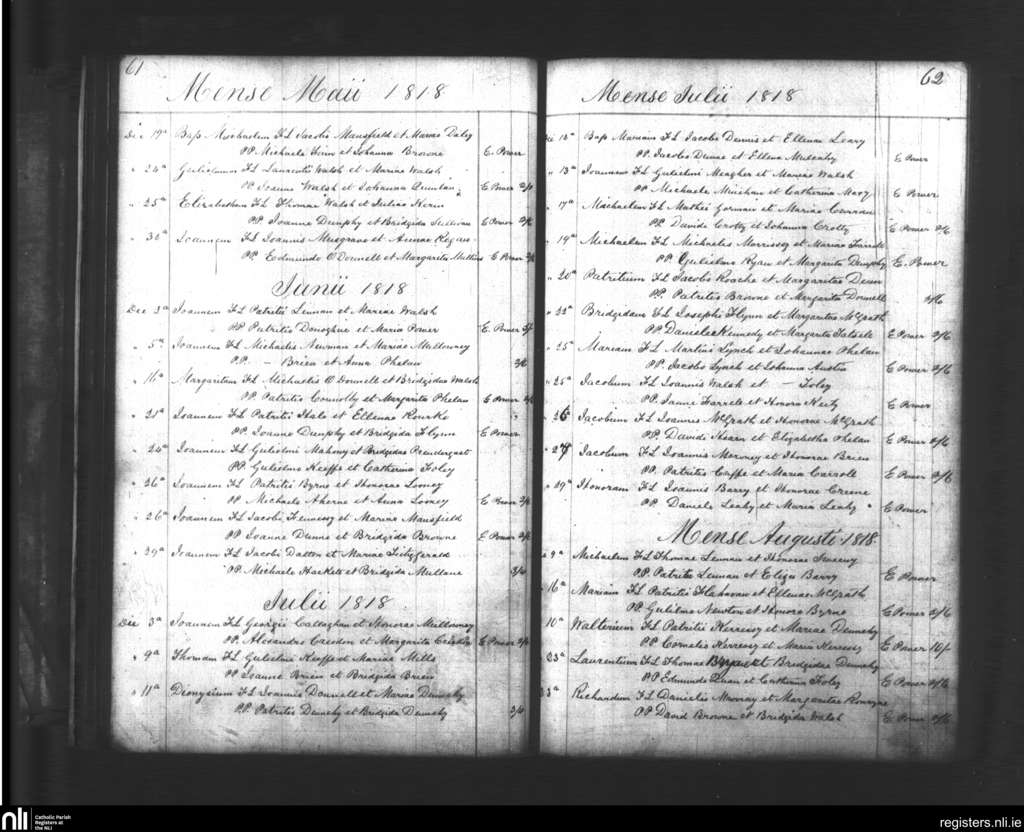 61
Mense Maii 1818
Die 19a Bapt Michaelem FL Jacobi Mansfield et Mariae Daley
PP. Michaele et Johanna Browne E. Power
" 24a Gulielmus FL Laurentii Walsh et Mariae Walsh
PP Joanne Walsh et Johanna Quinlan E Power 2/6
" 25a Elizabetham FL Thomae Walsh et Juliae
PP. Joanne Dunphy et Bridgida Sullivan E Power
" 30a Joannem FL Joannis Musgrave et Annae Regan
PP. Eedmundo O'Donnell et Margarita E Power
Junii 1818
Die 3a Joannem FL Patritii Lennan et Mariae Walsh
PP Patritio Donoghue et Maria Power E. Power
" 5a Joannem FL Michaelis Newman et Mariae Mullowney
P.P. - Brien et Anna Phelan
" 16a Margaritam FL Michaelis O Donnell et Bridgidae Walsh
PP. Patritio Connolly et Margarita Phelan E Power
" 21a Joannem FL Patritii Hale et Ellenae Rourke
PP. Joanne Dunphy et Bridgida Flynn E Power
" 24a Joannem FL Gulielmi Mahony et Bridgidae Prendergast
PP. Gulielmo Keeffe et Catherina Foley
" 26a Joannem FL Patritii Byrne et Honorae Looney
PP Michaele Aherne et Anna Looney E Power
" 26a Joannem FL Jacobi Hennessy et Mariae Mansfield
PP Joanne Dunne et Bridgida Browne E Power
" 29a Joannem FL Jacobi Dalton et Mariae Fitzgerald
PP. Michaele Hackett et Bridgida Mullane
Julii 1818
Die 3a Joannem FL Georgii Callaghan et Honorae Mullowney
PP. Alexandro et Margarita E Power
" 9a Thomam FL Gulielmi Keeffe et Mariae Mills
PP Joanne Brien et Bridgida Brien
" 11a Dionysium FL Joannis Donnell et Mariae Dunphy
PP. Patritio Dunehy et Bridgida Dunehy
62
Mense Julii 1818
Die 12a Bapt Mariam FL Jacobi Dennis et Ellenae Leary
PP. Jacobo Dunne et Ellena Mulcahy E Power
" 13a Joannem FL Gulielmi Meagher et Mariae Walsh
PP Michaele Minehan et Catherina E Power
" 17a Michaelem FL Mathei Gorman et Mariae Curran
PP. Davide Crotty et Johanna Crotty E Power 2/6
" 19a Michaelem FL Michaelis Morrissey et Mariae Farrell
PP Gulielmo Ryan et Margarita Dunphy E. Power
" 20a Patritium FL Jacobi Roache et Margaritae
PP. Patritio Browne et Margarita Donnell
" 22a Bridgidam FL Josephi Flynn et Margaritae McGrath
PP Daniele Kennedy et Margarita E Power 2/6
" 25a Mariam FL Martini Lynch et Johannae Phelan
PP. Jacobo Lynch et Johanna Austin E Power 2/6
" 25a Jacobum FL Joannis Walsh et - Foley
PP. Farrell et Honora E Power
" 26 Jacobum FL Joannis McGrath et Honorae McGrath
PP. Davide Hearn et Elizabetha Phelan E Power 2/6
" 27 Jacobum FL Joannis Moroney et Honorae Brien
PP. Patritio Caffe et Maria Carroll E Power 2/6
" 29a Honoram FL Joannis Barry et Honorae Greene
PP. Daniele Leahy et Maria Leahy E Power
Mense Augusti 1818
9a Michaelem FL Thomae Lennan et Honorae Sweeny
PP. Patritio Lennan et Eliza Barry E Power
" 16a Mariam FL Patritii Flahavan et Ellenae McGrath
PP. Gulielmo Newton et Honora Byrne E Power 2/6
10a Walterium FL Patritii Hennessy et Mariae Dunnehy
PP. Cornelio Hennessy et Maria Hennessy E Power 10/-
23a Laurentium FL Thomae Byrne et Bridgidae Dunnehy
PP Edmundo et Catherina Foley E Power
Richardum FL Danielis Murray et Margaritae Ronayne
PP David Browne et Bridgida Walsh E Power 2/6
nli
Catholic Parish
Registers at
the NLI
registers.nli.ie